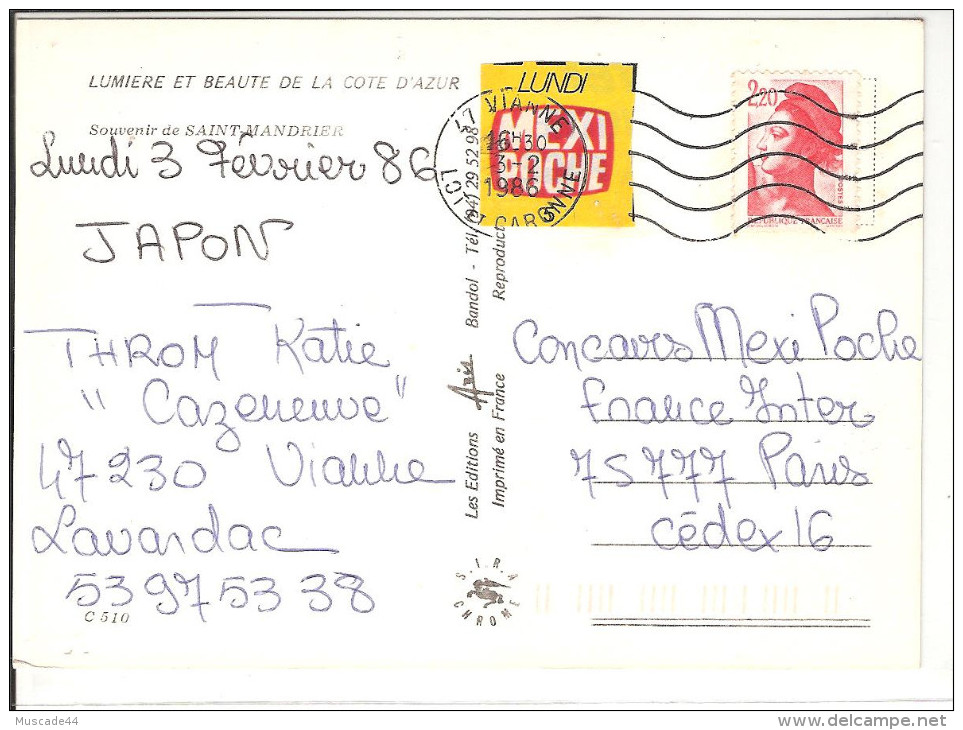 LUMIERE ET BEAUTE DE LA COTE D'AZUR
Souvenir de SAINT-MANDRIER
Lundi 3 Février 86
JAPON
THROM Katie
"Cazeneuve"
47230 Vianne
Lavardac
53 97 53 38
C 510
LUNDI
MEXI
POCHE
47 VIANNE
16H30
3-2
1986
LOT ET GARONNE
2,20
POSTES
REPUBLIQUE FRANCAISE
Les Editions Aris Bandol - Tél. (94) 29 52 98
Imprimé en France Reproduct
S.I.R.A
CHROME
Concours Mexi Poche
France Inter
75777 Paris
Cédex 16
Muscade44
www.delcampe.net